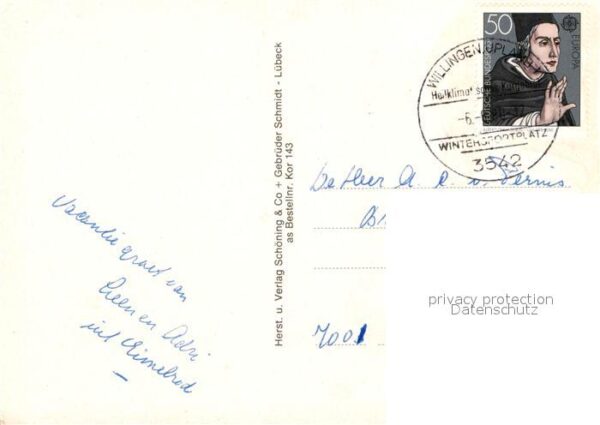 Vacantie groet van
Leen en Adri
uit Eimelrod
Herst. u. Verlag Schöning & Co + Gebrüder Schmidt - Lübeck
as Bestellnr. Kor 143
50
EUROPA
DEUTSCHE BUNDESPOST
WILLINGEN, UPLAND
Heilklimatischer
-6.
WINTERSPORTPLATZ
3542
A C v
7001
privacy protection
Datenschutz